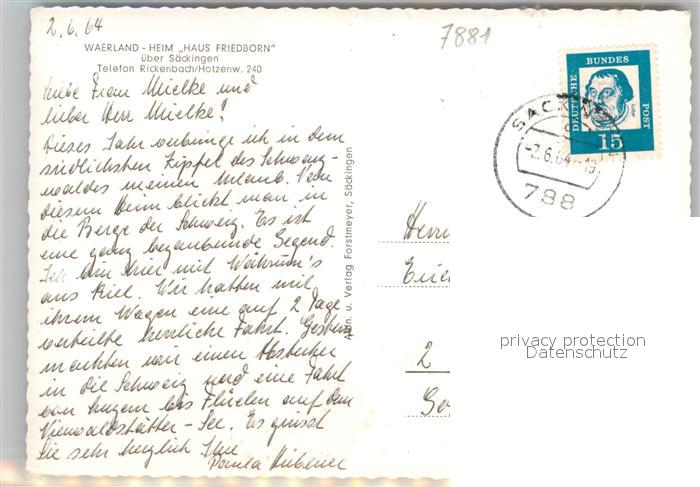 2.6.64
7881
WAERLAND - HEIM „HAUS FRIEDBORN"
über Säckingen
Telefon Rickenbach/Hotzenw. 240
Liebe Frau Mielke und
lieber Herr Mielke!
Dieses Jahr verbringe ich in dem
südlichsten Zipfel des Schwarz-
waldes meinen Urlaub. Von
diesem Heim blickt man in
die Berge der Schweiz. Es ist
eine ganz bezaubernde Gegend.
Ich bin hier mit
aus Kiel. Wir hatten mit
ihrem Wagen eine auf 2 Tage
verteilte herrliche Fahrt. Gestern
machten wir einen Abstecher
in die Schweiz und eine Fahrt
von Luzern bis Flüelen auf dem
Vierwaldstätter-See. Es grüsst
Sie sehr herzlich Ihre
Paula
Forstmeyer, Säckingen
DEUTSCHE
BUNDES
POST
15
SÄCK
-2.6.64-19
788
Herrn
2
privacy protection
Datenschutz